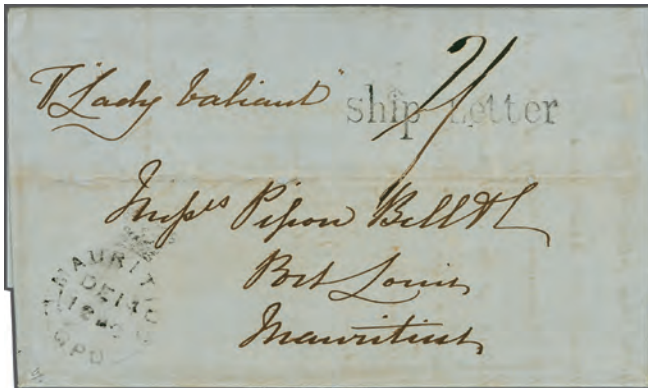 "Lady Valiant"
Ship Letter
Messrs Pipon Bell & Co
Port Louis
Mauritius
MAURITIUS
DE
G.P.O